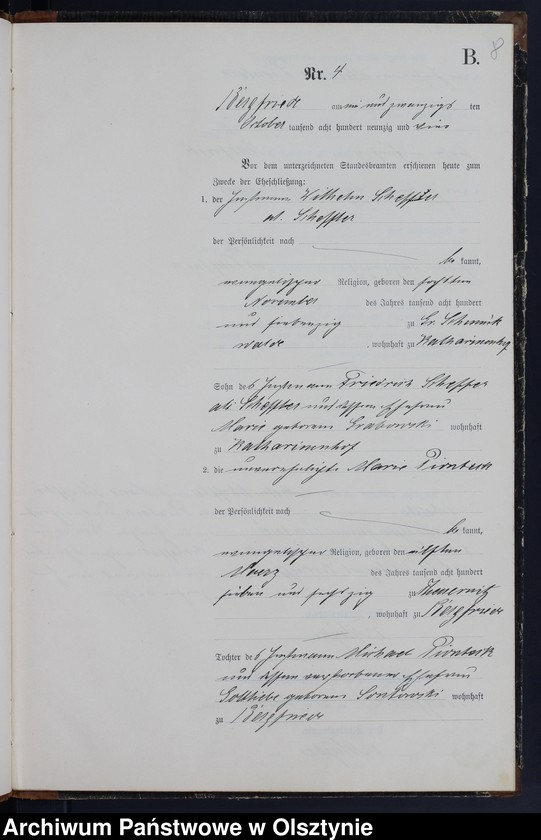 B.
8
Nr. 4
Bergfriede am ein und zwanzigsten
October tausend acht hundert neunzig und vier
Vor dem unterzeichneten Standesbeamten erschienen heute zum
Zwecke der Eheschließung:
1. der Instmann Wilhelm Scheffler
der Persönlichkeit nach
be kannt,
evangelischer Religion, geboren den sechsten
November des Jahres tausend acht hundert
und siebenzig zu Gr. Schmück
walde, wohnhaft zu Katharinenhof
Sohn des Instmann Friedrich Scheffler
und dessen Ehefrau
Marie geborene Grabowski wohnhaft
zu Katharinenhof
2. die unverehelichte Marie Pionteck
der Persönlichkeit nach
be kannt,
evangelischer Religion, geboren den elften
Maerz des Jahres tausend acht hundert
sieben und sechszig zu
, wohnhaft zu Bergfriede
Tochter des Instmann Michael Pionteck
und dessen verstorbener Ehefrau
Gottliebe geborene wohnhaft
zu Bergfriede
Archiwum Państwowe w Olsztynie